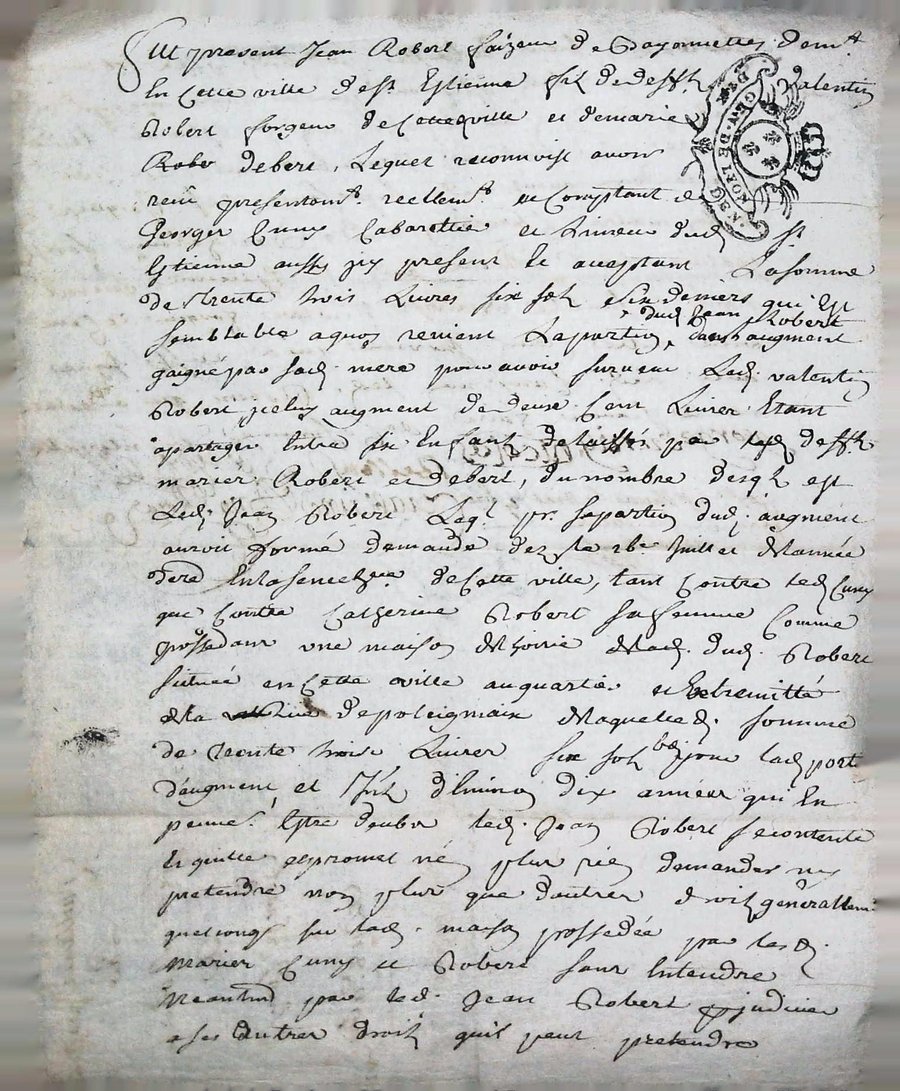 Fut present Jean Robert faizeur de Bayonnettes dem.t
En Cette ville de St Estienne fils de defft Valentin
Robert forgeur de Cette ville et de marie
Robert debert, Lequel reconnoist avoir
receu presentem.t reellem.t et Comptant de
Georges Cuny Cabarettier et Livreur dud. St
Estienne aussy icy present et acceptant La somme
de trente trois Livres six sols & six deniers qui Est
dud Jean Robert
semblable a quoy revient La portion dans augment
gaigné par sad. mere pour avoir survecu Led. valentin
Robert, iceluy augment de deux Cent Livres Etant
a partager Entre six Enfants delaissés par lesd deffts
mariez Robert et debert, du nombre desqls est
Led. Jean Robert Leql pr. sa portion dud. augment
auroit formé demande dez le 16e Juillet de l'année
dere En la senechée de Cette ville, tant Contre led Cuny
que Contre Catherine Robert sa femme Comme
possedans une maison de hoirie dud. Robert
situéé en Cette ville au quartier et Extremitté
de la Rue de poleignaix de laquelle d. somme
de trente trois Livres six sols 6d pour lad port
d'augment et Ints d'Environ dix années qui En
peuvent Estre deubs led. Jean Robert se contente
En quitte et promet n'en plus rien demander ny
pretendre non plus que d'autres droits generallemt
quelconqs sur lad. maison possedée par lesd.
mariez Cuny et Robert sans Entendre
Neantms par led. Jean Robert prejudicier
a ses autres droits quil peut pretendre
GEN. DE